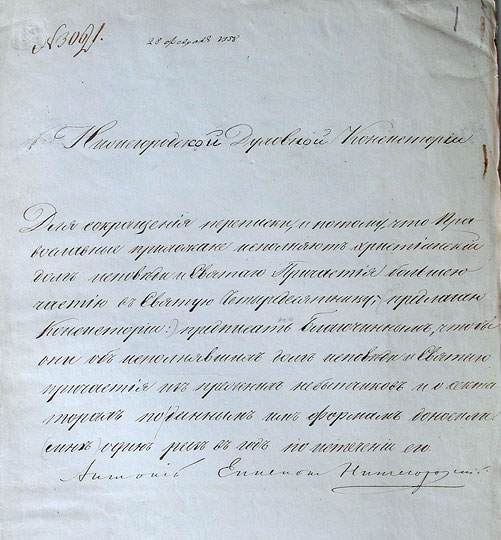 N 3091.
28 февраля 1858
Нижегородской Духовной Консисторіи
Для сокращенія переписки, и потому, что Пра-
вославные прихожане исполняютъ христіанской
долгъ исповѣди и Святаго Причастія большею
частію въ Святую Четыредесятницу; предлагаю
Консисторіи предписать Благочиннымъ, чтобъ
они объ исполнявшихъ долгъ исповѣди и Святаго
причастія изъ прежнихъ небытчиковъ и о секта
торахъ по даннымъ имъ формамъ доносили
одинъ разъ въ годъ по истеченіи его
Антоній Епископъ Нижегородскій